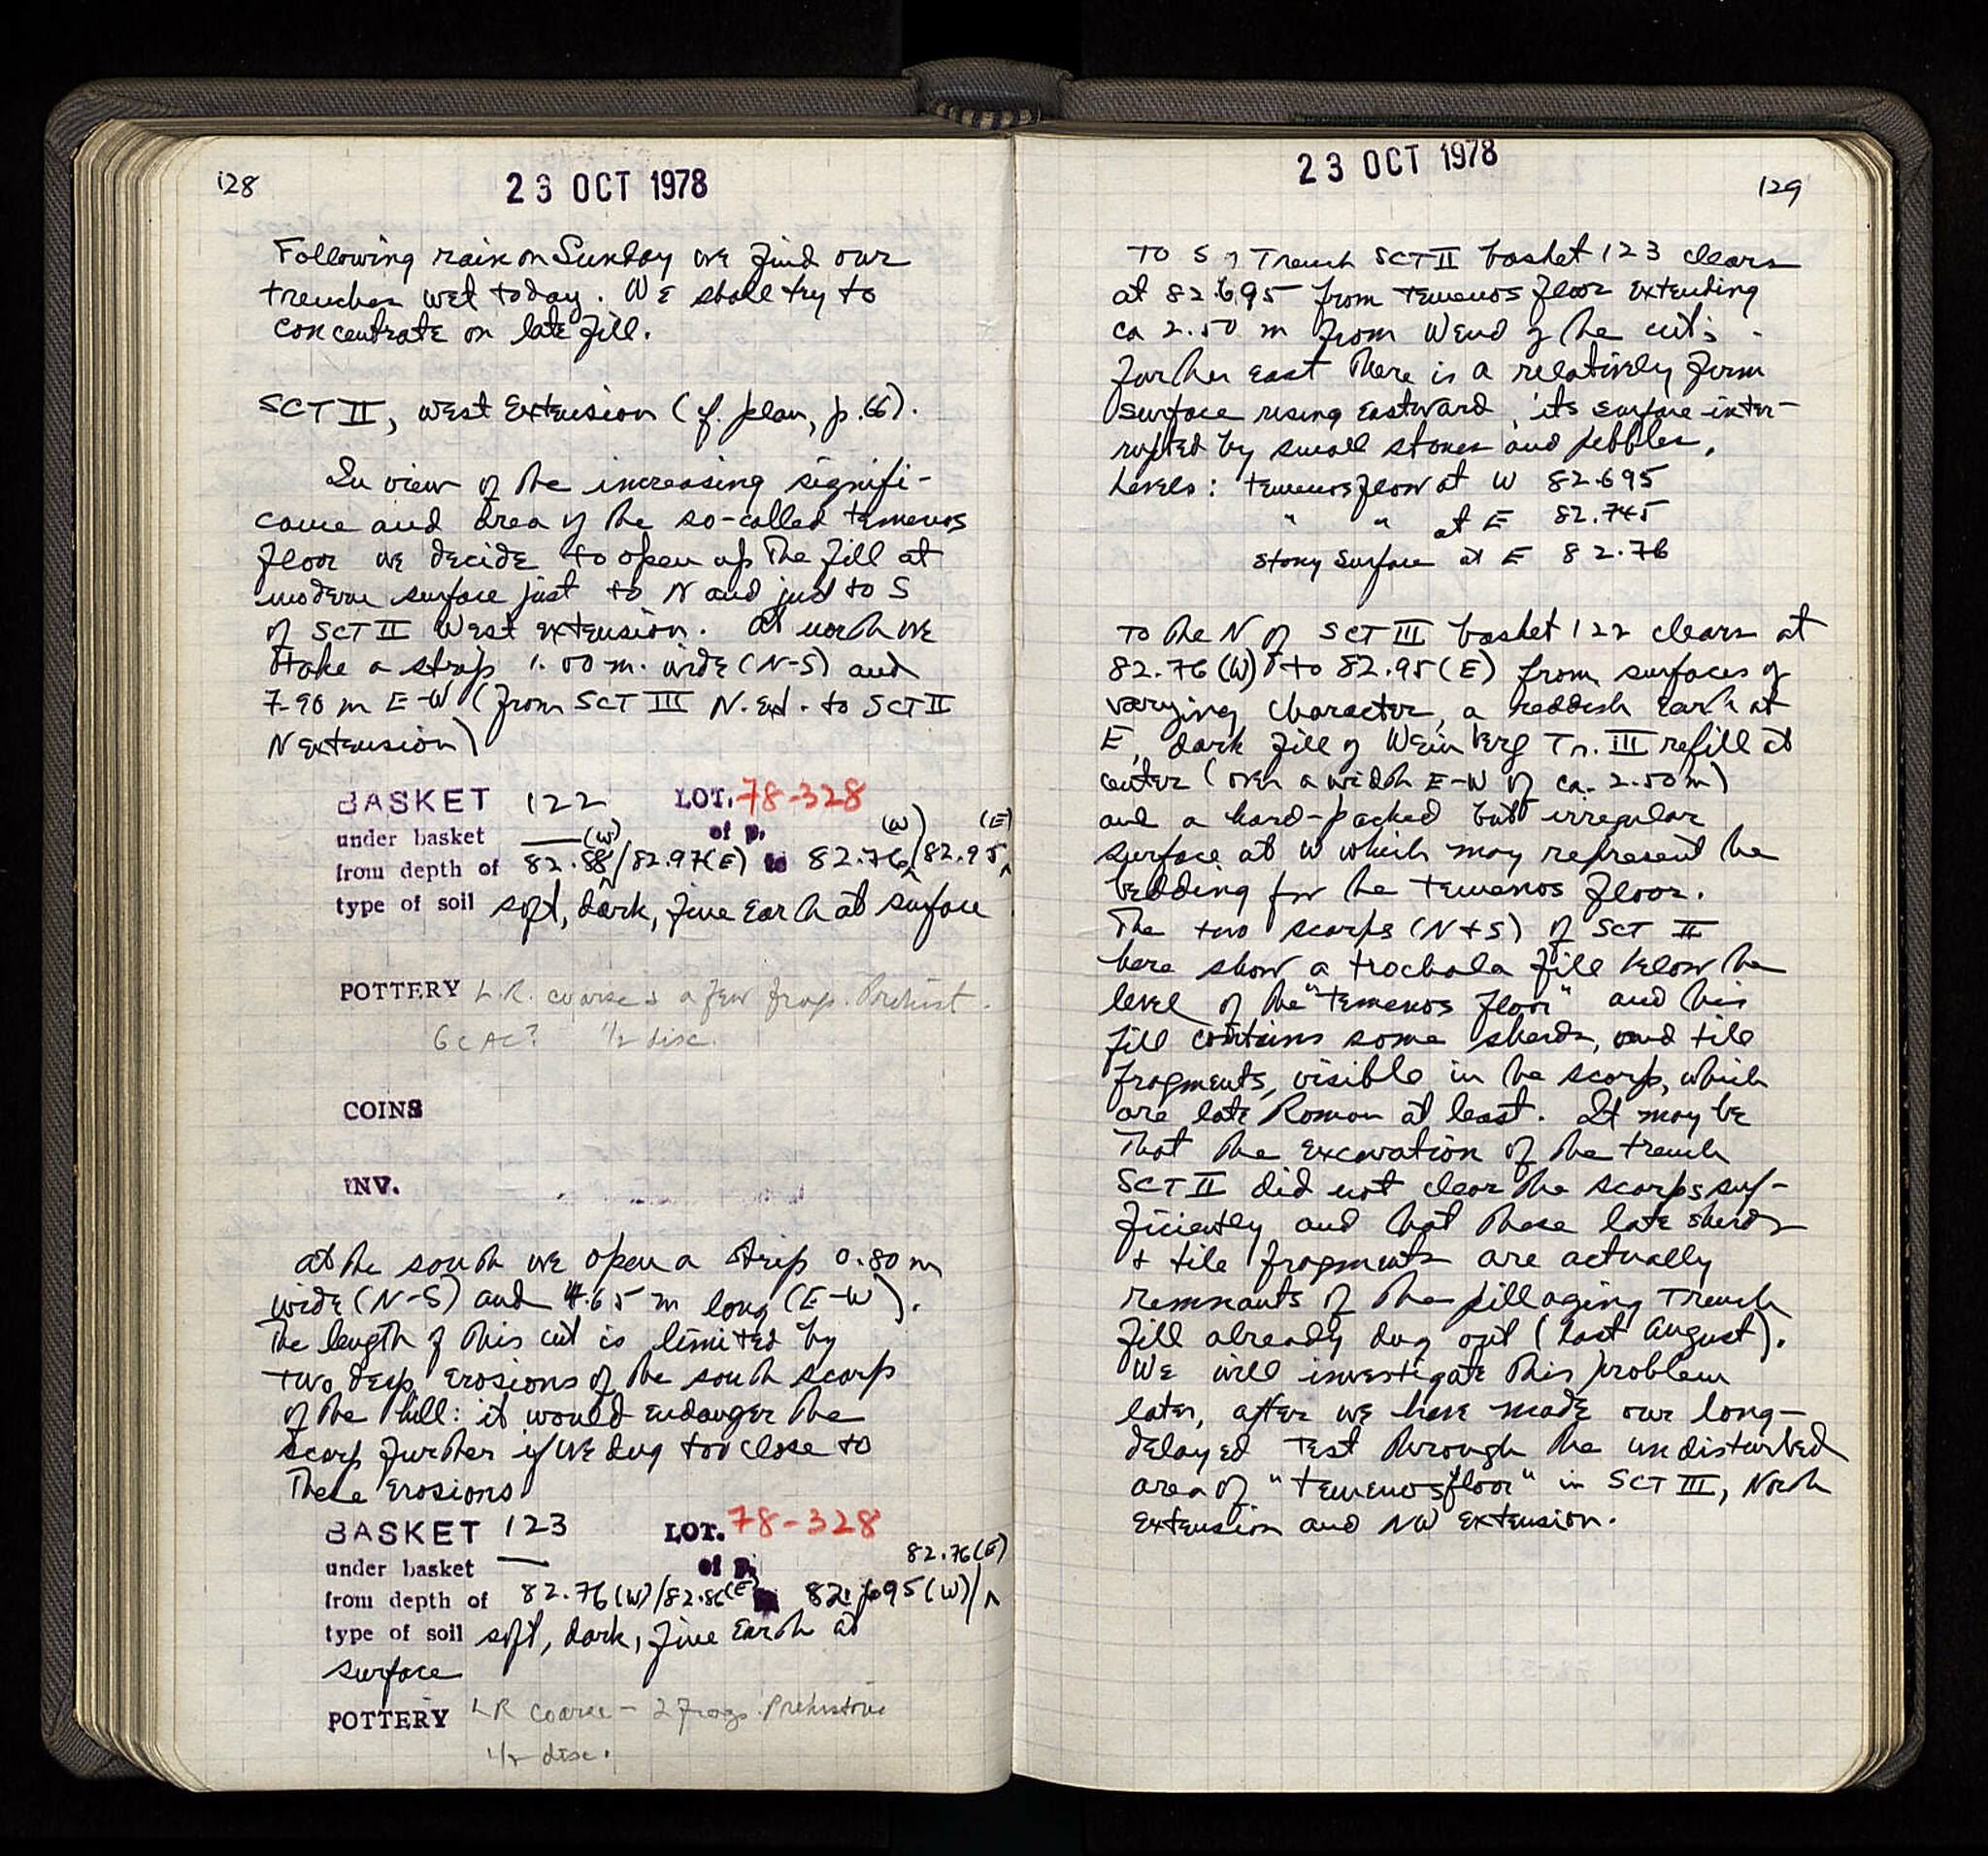 128
23 OCT 1978
Following rain on Sunday we find our
trenches wet today. We shall try to
concentrate on late fill.
SCT II, West Extension (cf. plan, p. 66).
In view of the increasing signifi-
cance and area of the so-called temenos
floor we decide to open up the fill at
modern surface just to N and just to S
of SCT II West extension. At north we
take a strip 1.00 m. wide (N-S) and
7.90 m E-W (from SCT III N. Ext. to SCT II
N extension)
BASKET 122 LOT. 78-328
under basket — of p.
from depth of 82.88 (W)/82.97(E) to 82.76 (W)/82.95 (E)
type of soil soft, dark, fine earth at surface
POTTERY L.R. coarse & a few frags. Prehist.
6c AC? 1/2 disc.
COINS
INV.
At the south we open a strip 0.80 m
wide (N-S) and 4.65 m long (E-W).
The length of this cut is limited by
two deep erosions of the south scarp
of the hill: it would endanger the
scarp further if we dug too close to
these erosions
BASKET 123 LOT. 78-328
under basket — of p.
from depth of 82.76(W)/82.86(E) to 82.695(W)/82.76(E)
type of soil soft, dark, fine earth at
surface
POTTERY LR coarse - 2 frags. Prehistoric
1/2 disc.
23 OCT 1978
129
To S of Trench SCT II basket 123 clears
at 82.695 from temenos floor extending
ca 2.50 m from W end of the cut;
further east there is a relatively firm
surface rising eastward, its surface inter-
rupted by small stones and pebbles.
Levels: temenos floor at W 82.695
" " at E 82.745
stony surface at E 82.76
To the N of SCT III basket 122 clears at
82.76 (W) to 82.95 (E) from surfaces of
varying character, a reddish earth at
E, dark fill of Weinberg Tr. III refill at
center (over a width E-W of ca. 2.50 m)
and a hard-packed but irregular
surface at W which may represent the
bedding for the temenos floor.
The two scarps (N+S) of SCT II
here show a trochala fill below the
level of the "temenos floor" and this
fill contains some sherds, and tile
fragments, visible in the scarp, which
are late Roman at least. It may be
that the excavation of the trench
SCT II did not clear the scarps suf-
ficiently and that these late sherds
+ tile fragments are actually
remnants of the pillaging trench
fill already dug out (last August).
We will investigate this problem
later, after we have made our long-
delayed test through the undisturbed
area of "temenos floor" in SCT III, North
extension and NW extension.